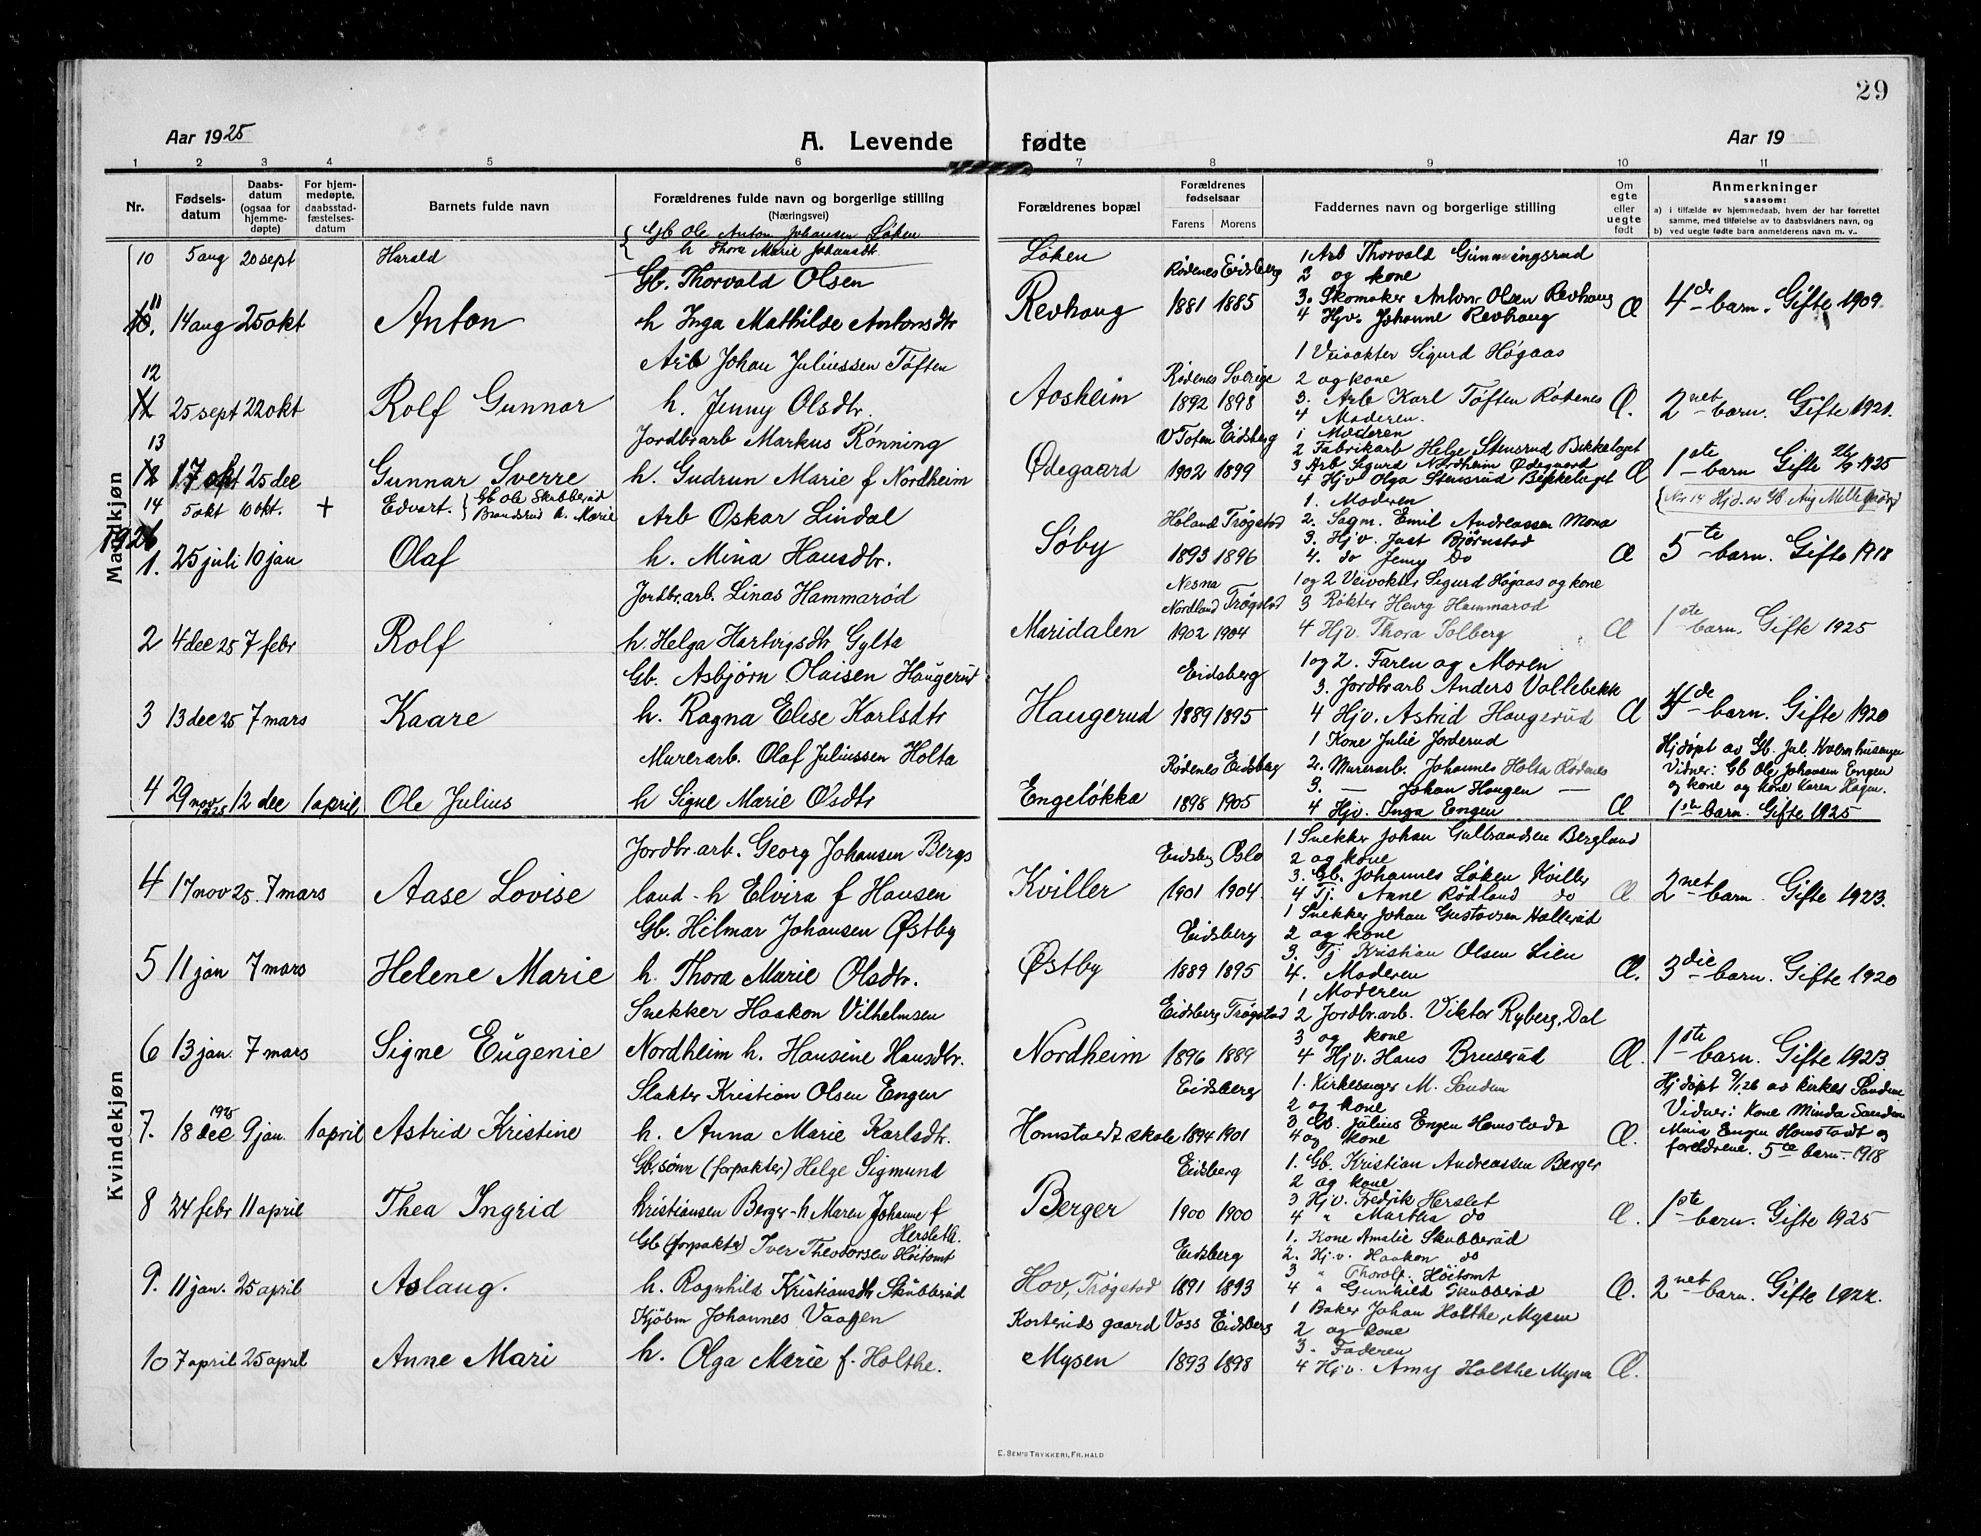 29
Aar 1925 A. Levende fødte Aar 19
1 2 3 4 5 6 7 8 9 10 11
Nr. Fødsels-datum Daabs-datum (ogsaa for hjemme-døpte) For hjem-medøpte, daabsstad-fæstelses-datum Barnets fulde navn Forældrenes fulde navn og borgerlige stilling (Næringsvei) Forældrenes bopæl Forældrenes fødselsaar Farens Morens Faddernes navn og borgerlige stilling Om egte eller uegte født Anmerkninger saasom: a) i tilfælde av hjemmedaab, hvem der har forrettet samme, med tilføielse av to daabsvidners navn, m. v. b) ved uegte fødte barn anmelderens navn m. v.
Mandkjøn
10 5 aug 20 sept Harald Gb Ole Anton Johansen Løken
h Thora Marie Johansdt. Løken
11 10. 14 aug 25 okt Anton Gb. Thorvald Olsen
h Inga Mathilde Antonsdtr Revhaug Rødenes Eidsberg 1881 1885
1 Arb Thorvald Gunningsrud
2 og kone
3. Skomaker Anton Olsen Revhaug
4 Hjv. Johanne Revhaug Æ 4de barn. Gifte 1909.
12 11 25 sept 22 okt Rolf Gunnar Arb Johan Juliussen Tøften
h. Jenny Olsdtr. Aosheim Rødenes Sverige 1892 1898
1 Veivokter Sigurd Høgaas
2 og kone
3. Arb Karl Tøften Rødenes
4 Moderen. Æ. 2net barn. Gifte 1921.
13 12 17 okt 25 dec Gunnar Sverre Jordbr.arb Markus Rønning
h. Gudrun Marie f Nordheim Ødegaard V Toten Eidsberg 1902 1899
1 Moderen
2 Fabrikarb Helge Stensrud Bekkelaget
3 Arb Sigurd Nordheim Ødegaard
4 Hjv Olga Stensrud Bekkelaget Æ 1ste barn Gifte 1925
14 5 okt 10 okt. + Edvart. Gb Ole Skubberud
Brandsrud h. Marie
Nr 14 Hj.d. av Gb Aug
1926
1. 25 juli 10 jan Olaf Arb Oskar Lindal
h. Mina Hansdtr. Søby Høland Trøgstad 1893 1896
1. Moderen
2. Sagm. Emil Andreassen Mona
3. Hjv. Just Bjørnstad
4. do Jenny Do Æ 5te barn. Gifte 1918
2 4 dec 25 7 febr Rolf Jordbr.arb. Linas Hammarød
h. Helga Hartvigsdtr Gylta Maridalen Nesna Nordland Trøgstad 1902 1904
1 og 2 Veivokter Sigurd Høgaas og kone
3 Røkter Henry Hammarød
4 Hjv. Thora Solberg Æ 1ste barn. Gifte 1925
3 13 dec 25 7 mars Kaare Gb. Asbjørn Olaisen Haugerud
h. Ragna Elise Karlsdtr Haugerud Eidsberg 1889 1895
1 og 2. Faren og Moren
3. Jordbr.arb Anders Vollebekk
4 Hjv. Astrid Haugerud Æ de barn. Gifte 1920
4 29 nov 1925 12 dec 1 april Ole Julius Murerarb. Olaf Juliussen Holta
h Signe Marie Olsdtr Engeløkka Rødenes Eidsberg 1898 1905
1 Kone Julie Jorderud
2. Murerarb. Johannes Holta Rødenes
3. — Johan Haugen —
4 Hjv. Inga Engen Æ Hjdøpt av Gb. Jul. Kvernhusengen
Vidner: Gb Ole Johansen Engen
og kone og kone Karen Hagen.
1ste barn. Gifte 1925
Kvindekjøn
4 17 nov 25. 7 mars Aase Lovise Jordbr.arb. Georg Johansen Bergs
land - h Elvira f Hansen Kviller Eidsbg Oslo 1901 1904
1 Snekker Johan Gulbrandsen Bergland
2 og kone
3. Gb. Johannes Løken Kviller
4 Tj. Anne Rødland do Æ 2net barn. Gifte 1923.
5 11 jan 7 mars Helene Marie Gb. Hilmar Johansen Østby
h. Thora Marie Olsdtr. Østby Eidsberg 1889 1895
1 Snekker Johan Gustavsen Hallerud
2 og kone
3. Tj Kristian Olsen Lien
4. Moderen Æ. 3die barn. Gifte 1920
6 13 jan. 7 mars Signe Eugenie Snekker Haakon Vilhelmsen
Nordheim h. Hansine Hansdtr. Nordheim Eidsberg Trøgstad 1896 1889
1 Moderen
2 Jordbr.arb. Viktor Ryberg, Dal
3 og kone
4 Hjv. Hans Bruserud Æ. 1ste barn. Gifte 1923.
7. 18 dec 1925 9 jan. 1 april Astrid Kristine Slakter Kristian Olsen Engen
h. Anna Marie Karlsdtr. Homstvedt skole Eidsberg 1894 1901
1. Kirkesanger M. Sandem
2 og kone
3 Gb. Julius Engen Homstvdt
4 og kone Æ. Hjdøpt 9/1 26 av kirkes Sandem
Vidner: Kone Minda Sandem
Maria Engen Homstvdt og
foreldrene. 5te barn - 1918
8 24 febr 11 april Thea Ingrid Gb.sønn (forpakter) Helge Sigmund
Kristiansen Berger - h Maren Johanne f
Hersleth. Berger Eidsberg 1900 1900
1. Gb. Kristian Andreassen Berger
2 og kone
3 Hjv. Fredrik Herslet
4 " Martha do Æ. 1ste barn. Gifte 1925
9. 11 jan. 25 april Aslaug. Gb (forpakter) Iver Theodorsen Høitomt
h. Ragnhild Kristiansdt Skubberud Hov, Trøgstad Eidsberg 1891 1893
1. Kone Amalie Skubberud
2. Hjv. Haakon do
3 " Thorolf Høitomt
4 " Gunhild Skubberud Æ. 2net barn. Gifte 1922.
10 7 april 25 april Anne Mari Kjøbm Johannes Vaagen
h. Olga Marie f. Holthe. Korterids gaard
Mysen Voss Eidsberg 1893 1898
1 Baker Johan Holthe, Mysen
2 og kone
3. Faderen
4 Hjv. Amy Holthe Mysen Æ.
E. SEM'S TRYKKERI, FR.HALD